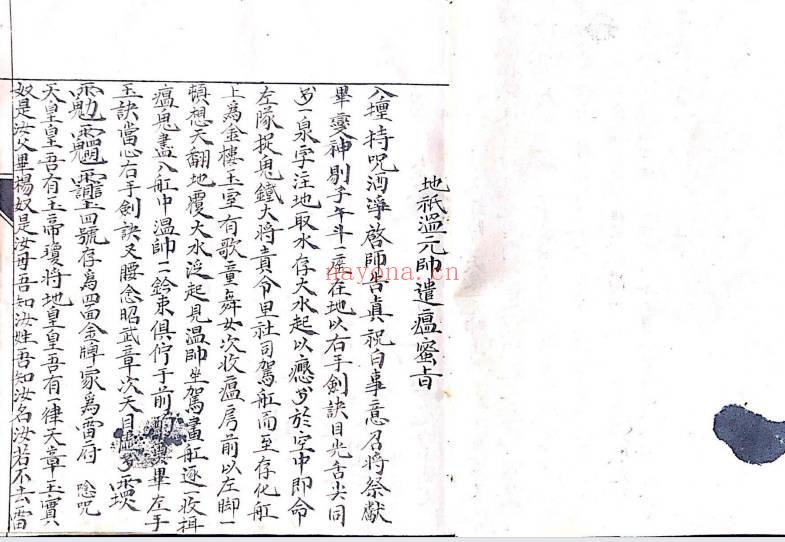 地祇温元帅遣瘟蜜旨
入壇持呪洒淨啓師吉真祝白事意召將祭獻
畢变神剔子午斗一座在地以右手劍訣目光舌尖同
一泉字注地取水存大水起以於空中即命
左隊捉鬼鐵大將責令里社司駕舡而至存化舡
上為金樓玉室有歌童舞女次收瘟房前以左脚一
頓想天翻地覆大水泛起見温帥坐駕畫舡逐一收捉
瘟鬼盡入舡中温帥二鈴束俱佇于前畢左手
玉訣當心右手劍訣叉腰念昭武章次天目
四號存為四面金牌家為雷府 唸呪
天皇皇吾有玉帝瓊將地皇皇吾有一律天章玉實
奴是汝父畢楊奴是汝母吾知汝姓吾知汝名汝若不去雷
nayona.cn